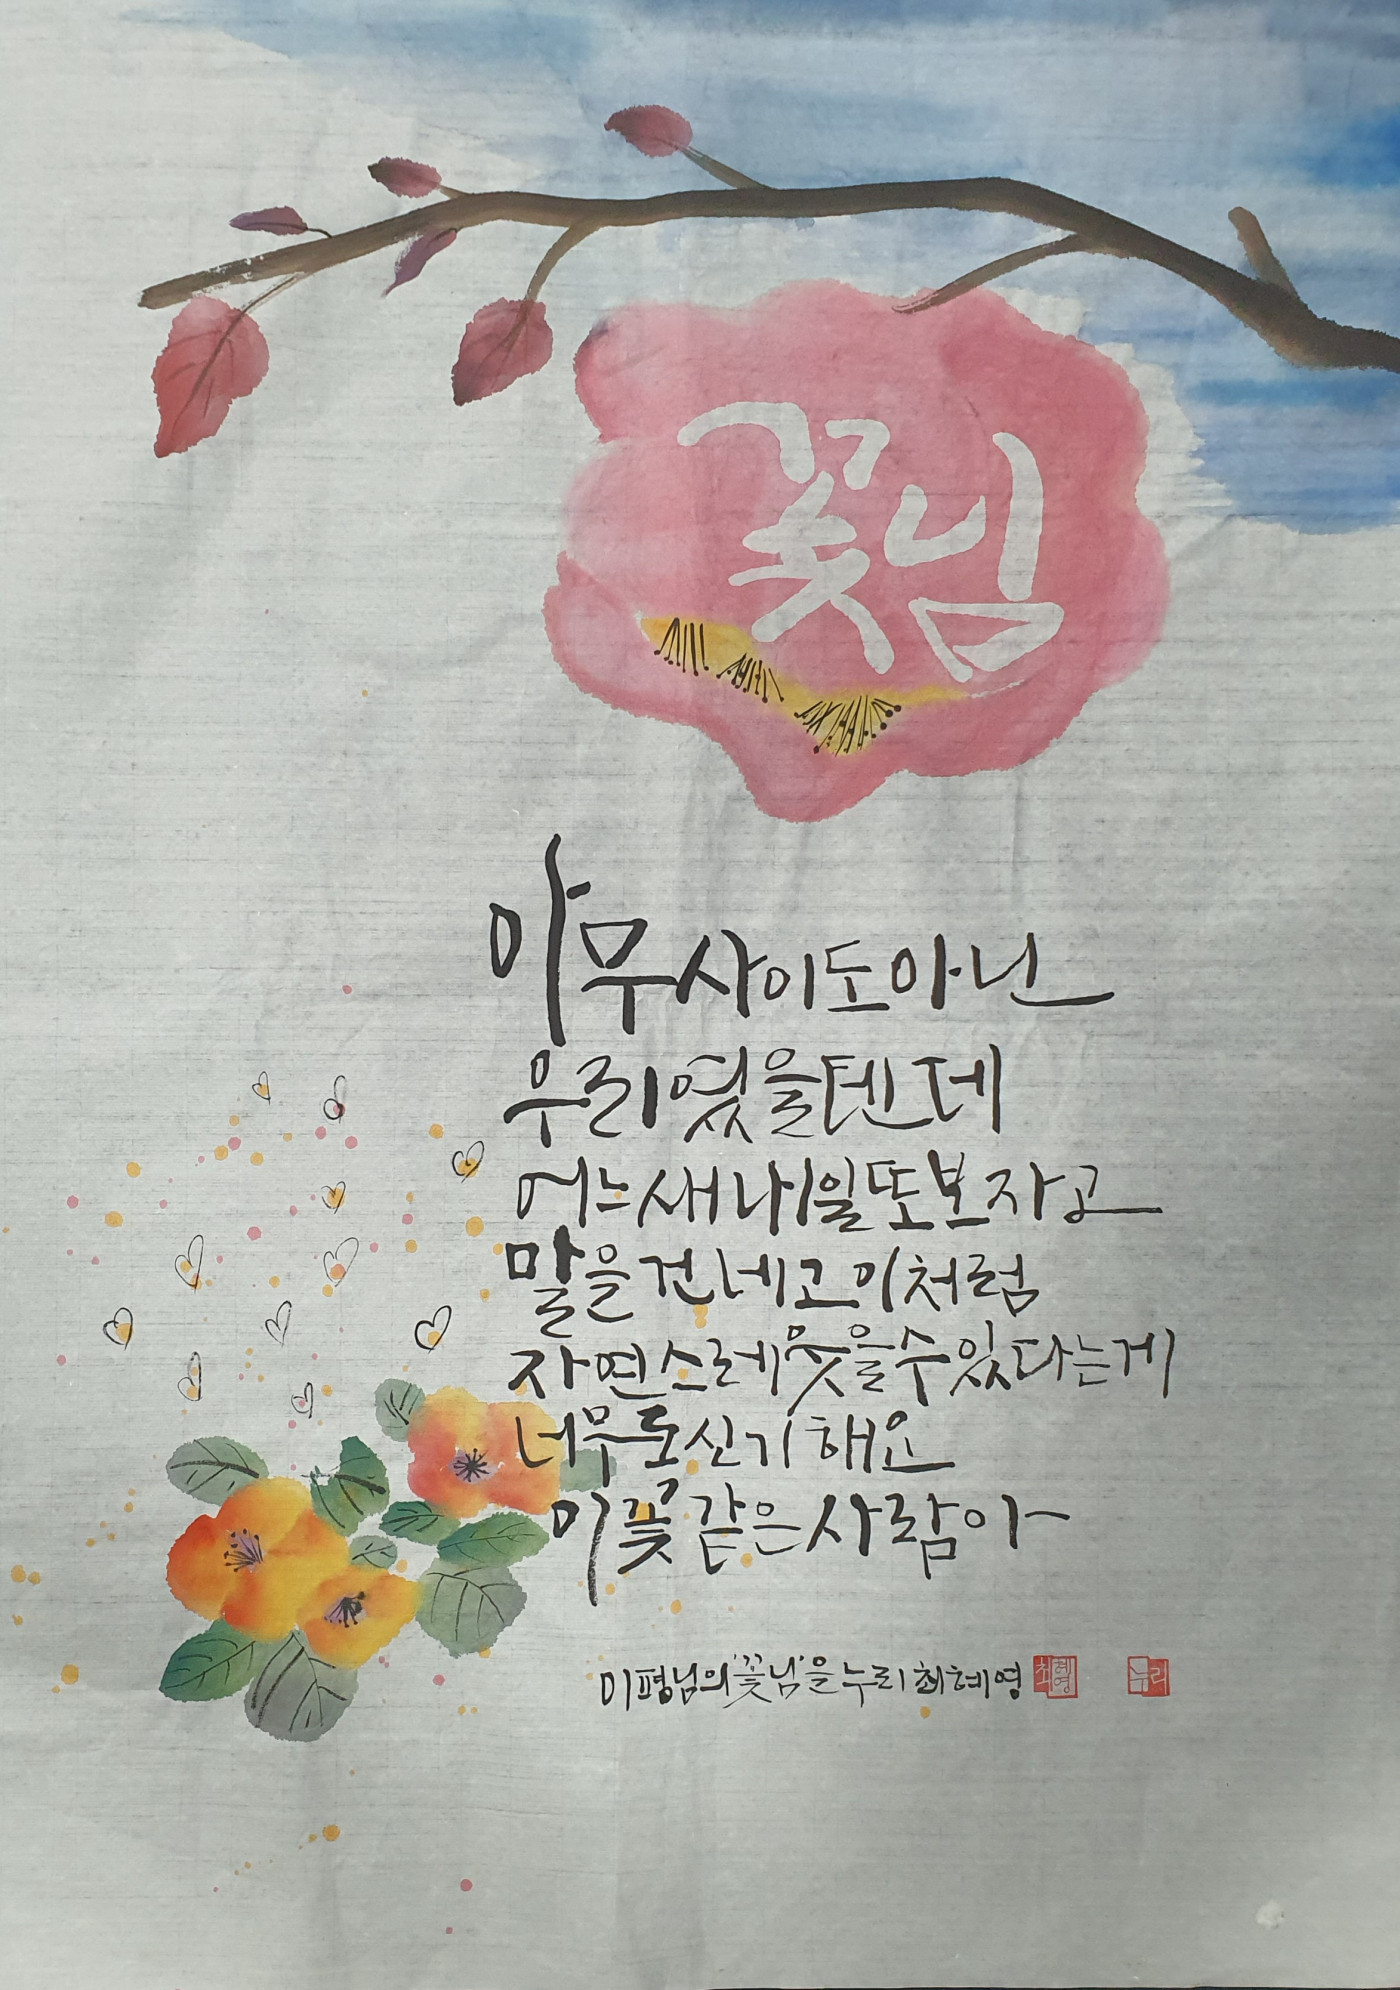 꽃님
아무 사이도 아닌
우리였을텐데
어느새 내일 또 보자고
말을 건네고 이처럼
자연스레 웃을 수 있다는게
너무도 신기해요
이 꽃같은 사람아
이평님의 '꽃님'을 누리 최혜영
최혜영
누리